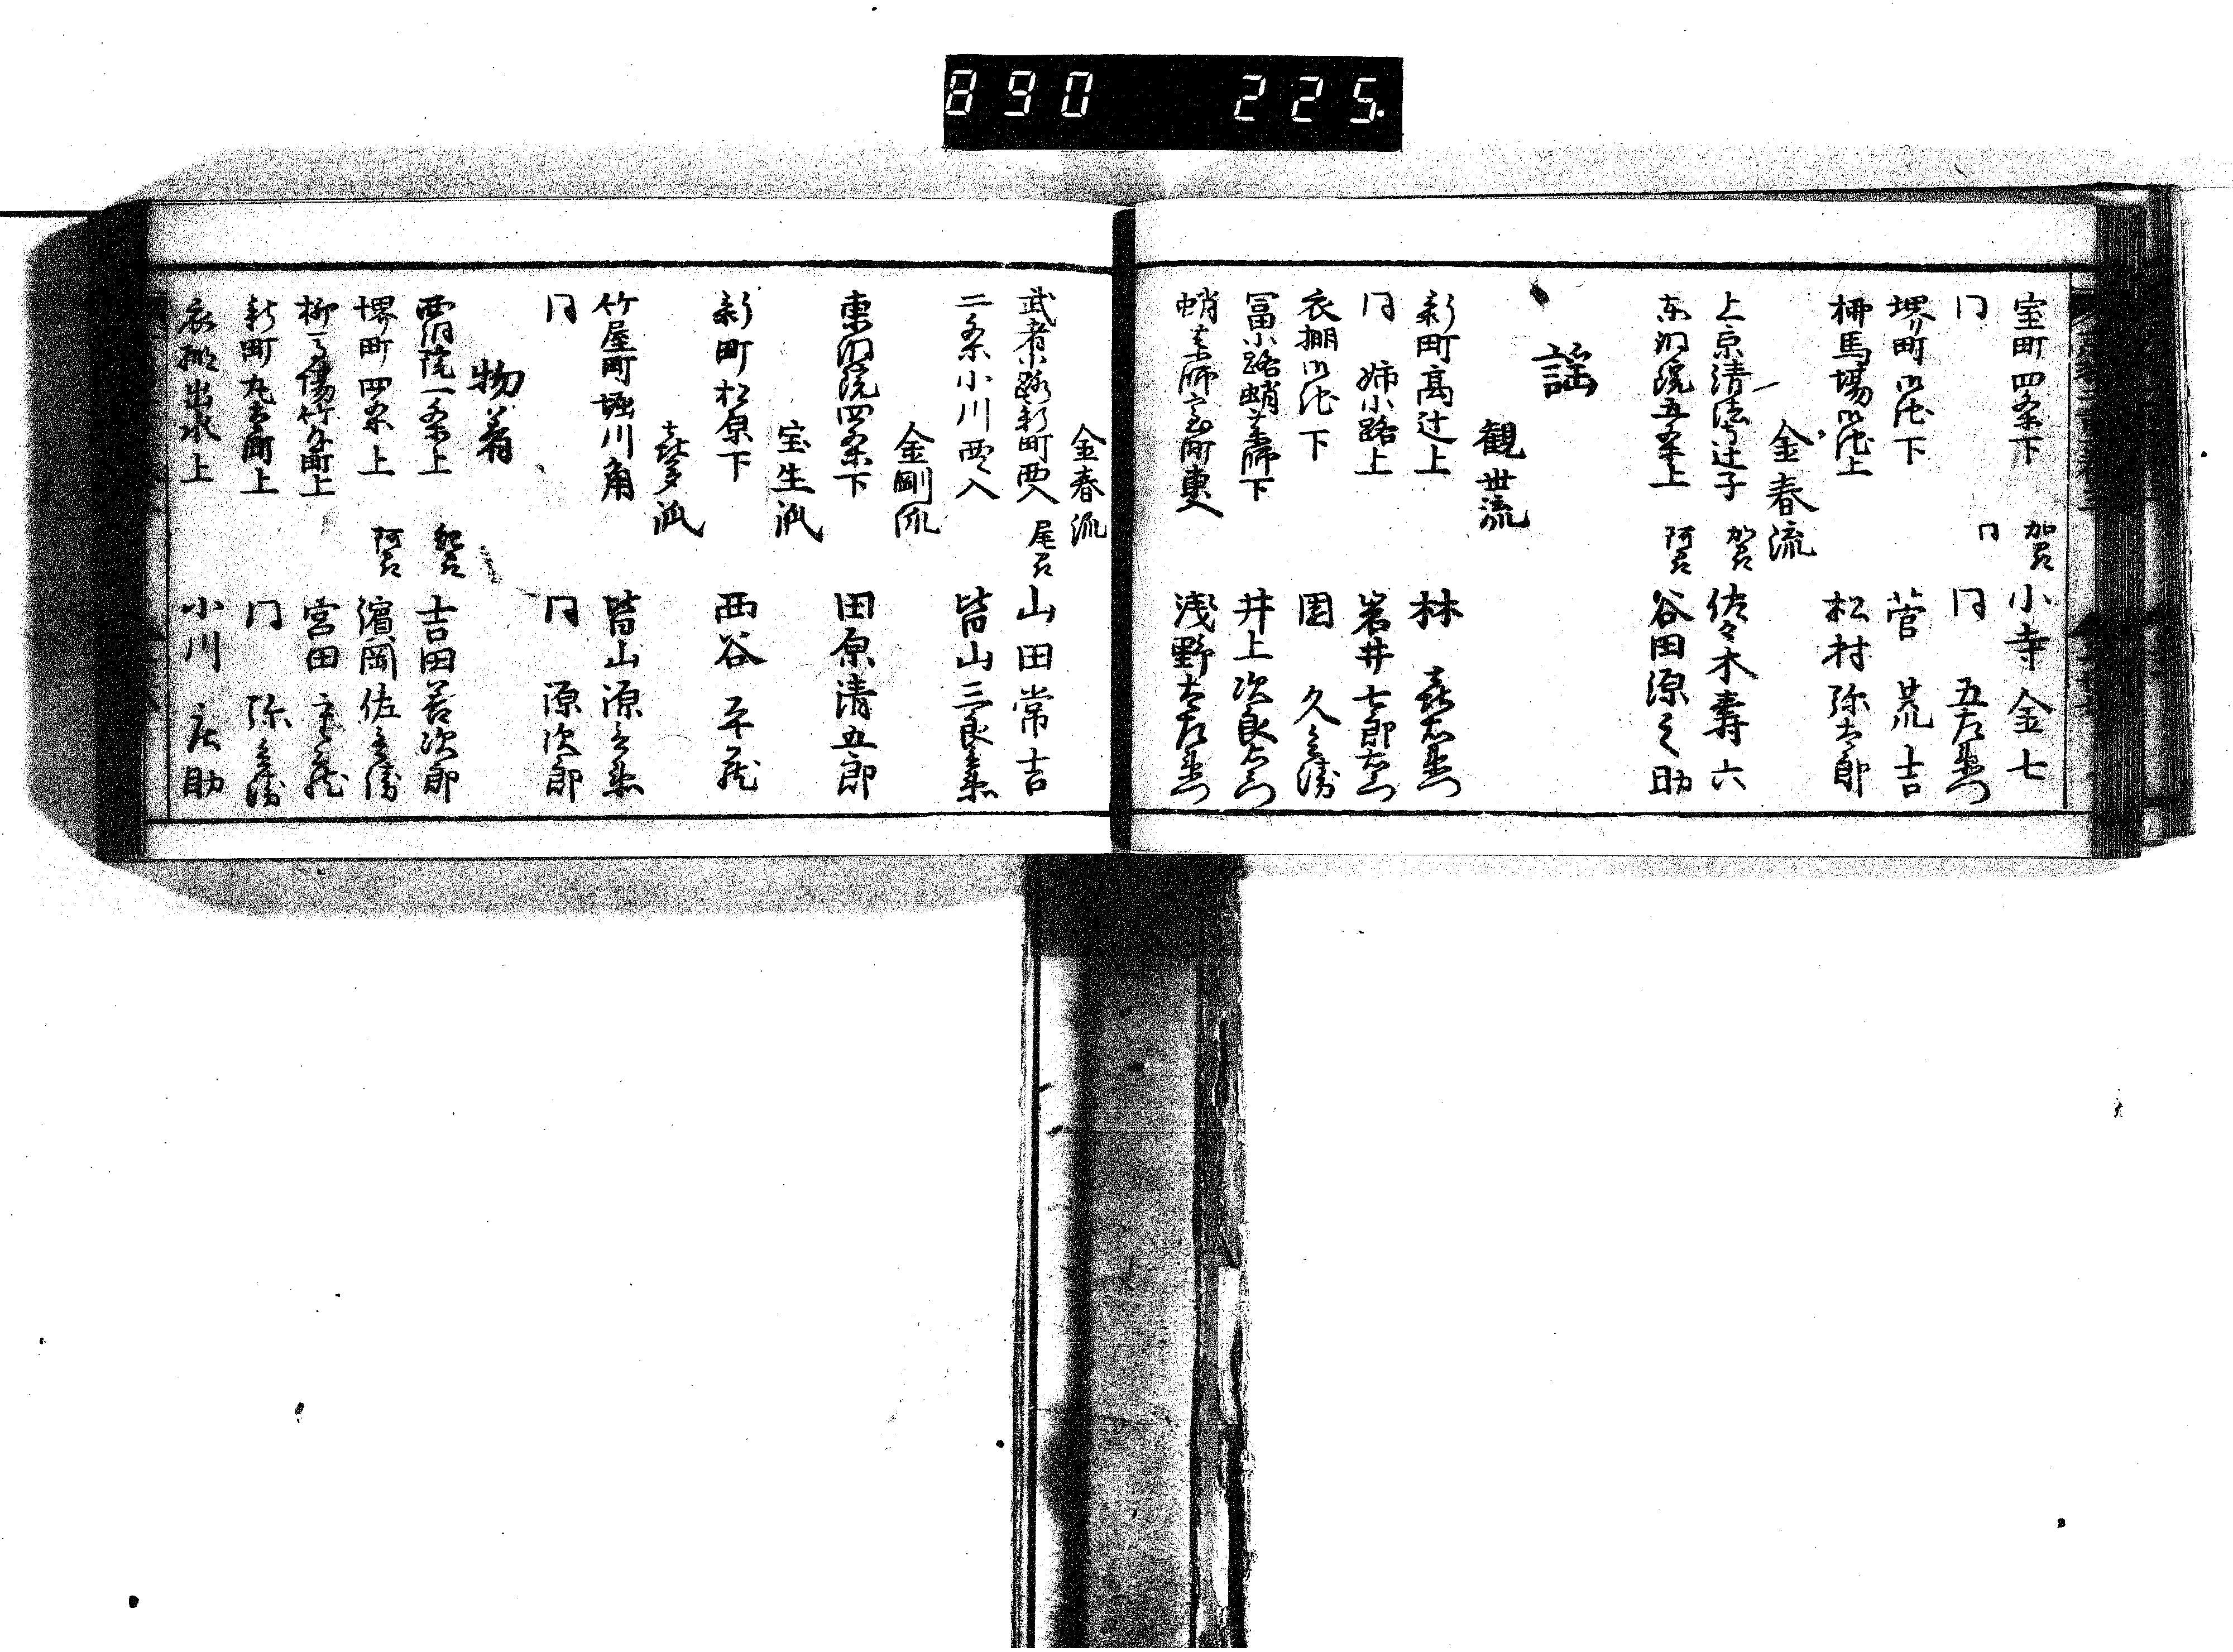 890 225.
室町四条下 加賀 小寺金七
同 同 同 五左衛門
堺町御池下 菅 荒吉
柳馬場御池上 松村弥太郎
金春流
上京清蔵口辻子 加賀 佐々木寿六
東洞院五条上 阿州 谷田源之助
謡
観世流
新町高辻上 林 喜右衛門
同 姉小路上 岩井七郎右衛門
衣棚御池下 園 久兵衛
冨小路蛸薬師下 井上次良右衛門
蛸薬師室町東入 浅野太左衛門
金春流
武者小路新町西入 尾州 山田常吉
二条小川西入 皆山三良兵衛
金剛流
東洞院四条下 田原清五郎
宝生流
新町松原下 西谷平蔵
喜多流
竹屋町堀川角 皆山源兵衛
同 同 源次郎
物着
西洞院一条上 紀州 吉田善次郎
堺町四条上 阿州 濱岡佐兵衛
柳馬場竹屋町上 宮田
新町丸太町上 同 弥兵衛
衣棚出水上 小川庄助